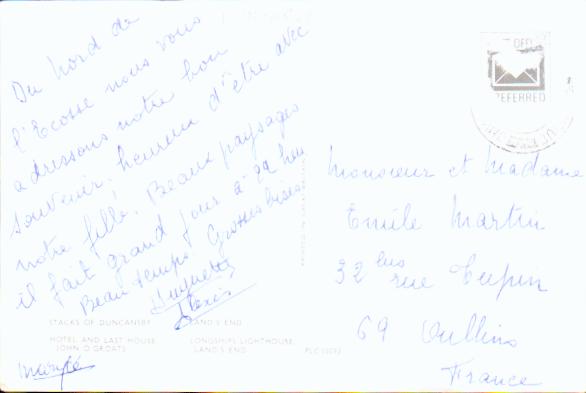 Du Nord de
l'Ecosse nous vous
adressons notre bon
souvenir, heureux d'être avec
notre fille. Beaux paysages
il fait grand jour à 22 heures
Beau temps Grosses bises
Huguette
Alexis
Maryté
STACKS OF DUNCANSBY
LAND'S END
HOTEL AND LAST HOUSE,
JOHN O'GROATS
LONGSHIPS LIGHTHOUSE,
LAND'S END
Monsieur et Madame
Emile Martin
32 bis rue Tupin
69 Oullins
France